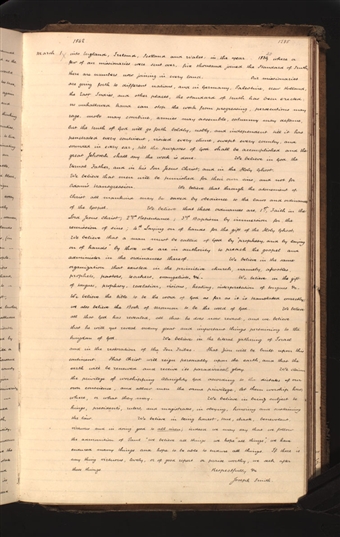 1842 1285
March 1 into England, Ireland, Scotland and Wales, in the year 1839 where a
few of our missionaries were sent over five thousand joined the Standard of Truth,
there are numbers now joining in every land. Our missionaries
are going forth to different nations, and in Germany, Palestine, New Holland,
the East Indies, and other places, the standard of truth has been erected:
no unhallowed hand can stop the work from progressing, persecutions may
rage, mobs may combine, armies may assemble, calumny may defame,
but the truth of God will go forth boldly, nobly, and independent till it has
penetrated every continent, visited every clime, swept every country, and
sounded in every ear, till the purposes of God shall be accomplished and the
great Jehovah shall say the work is done. We believe in God the
Eternal Father, and in his Son Jesus Christ, and in the Holy Ghost.
We believe that men will be punished for their own sins and not for
Adam's transgression. We believe that through the atonement of
Christ all mankind may be saved by obedience to the laws and ordinances
of the Gospel. We believe that these ordinances are 1st Faith in the
Lord Jesus Christ; 2nd Repentance; 3rd Baptism by immersion for the
remission of sins; 4th Laying on of hands for the gift of the Holy Ghost.
We believe that a man must be called of God by "prophesy, and by laying
on of hands" by those who are in authority to preach the gospel and
administer in the ordinances thereof. We believe in the same
organization that existed in the primitive church, namely, apostles,
prophets, pastors, teachers, evangelists &c. We believe in the gift
of tongues, prophesy, revelation, visions, healing, interpretation of tongues &c.
We believe the bible to be the word of God as far as it is translated correctly;
we also believe the Book of Mormon to be the word of God. We believe
all that God has revealed, all that he does now reveal, and we believe
that he will yet reveal many great and important things pertaining to the
kingdom of God. We believe in the literal gathering of Israel
and in the restoration of the Ten Tribes. That Zion will be built upon this
continent. That Christ will reign personally upon the earth, and that the
earth will be renewed and receive its paradisaical glory. We claim
the privilege of worshipping Almighty God according to the dictates of our
own conscience, and allow all men the same privilege, let them worship how,
where, or what they may. We believe in being subject to
kings, presidents, rulers, and magistrates, in obeying, honoring and sustaining
the law. We believe in being honest, true, chaste, benevolent,
virtuous and in doing good to all men; indeed we may say that we follow
the admonition of Paul "we believe all things we hope all things," we have
endured many things and hope to be able to endure all things. If there is
any thing virtuous, lovely, or of good report or praise worthy, we seek after
these things. Respectfully &c
Joseph Smith.